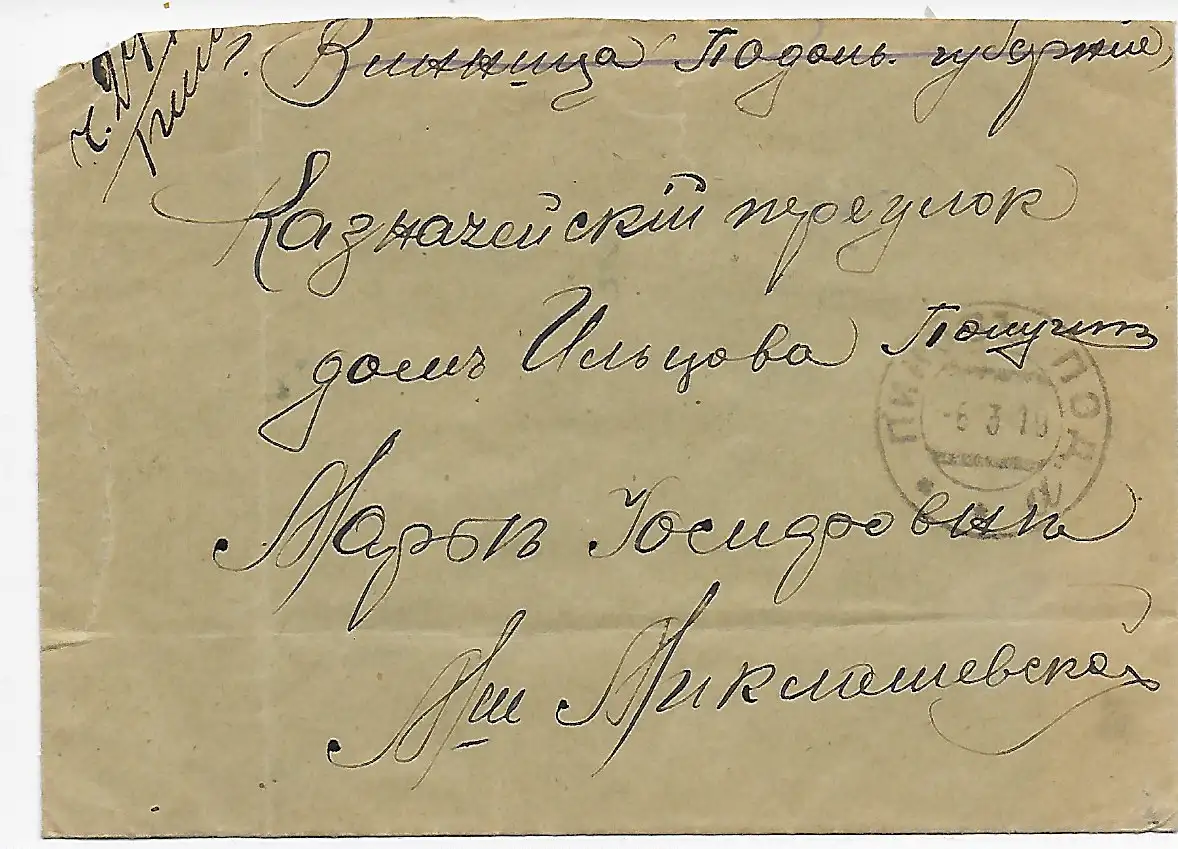 г. Винница Подоль. губернiе,
Казначейскiй переулок
домъ Ильцова Получит
Марьѣ Iосифовнѣ
Миклашевской
-6 3 18